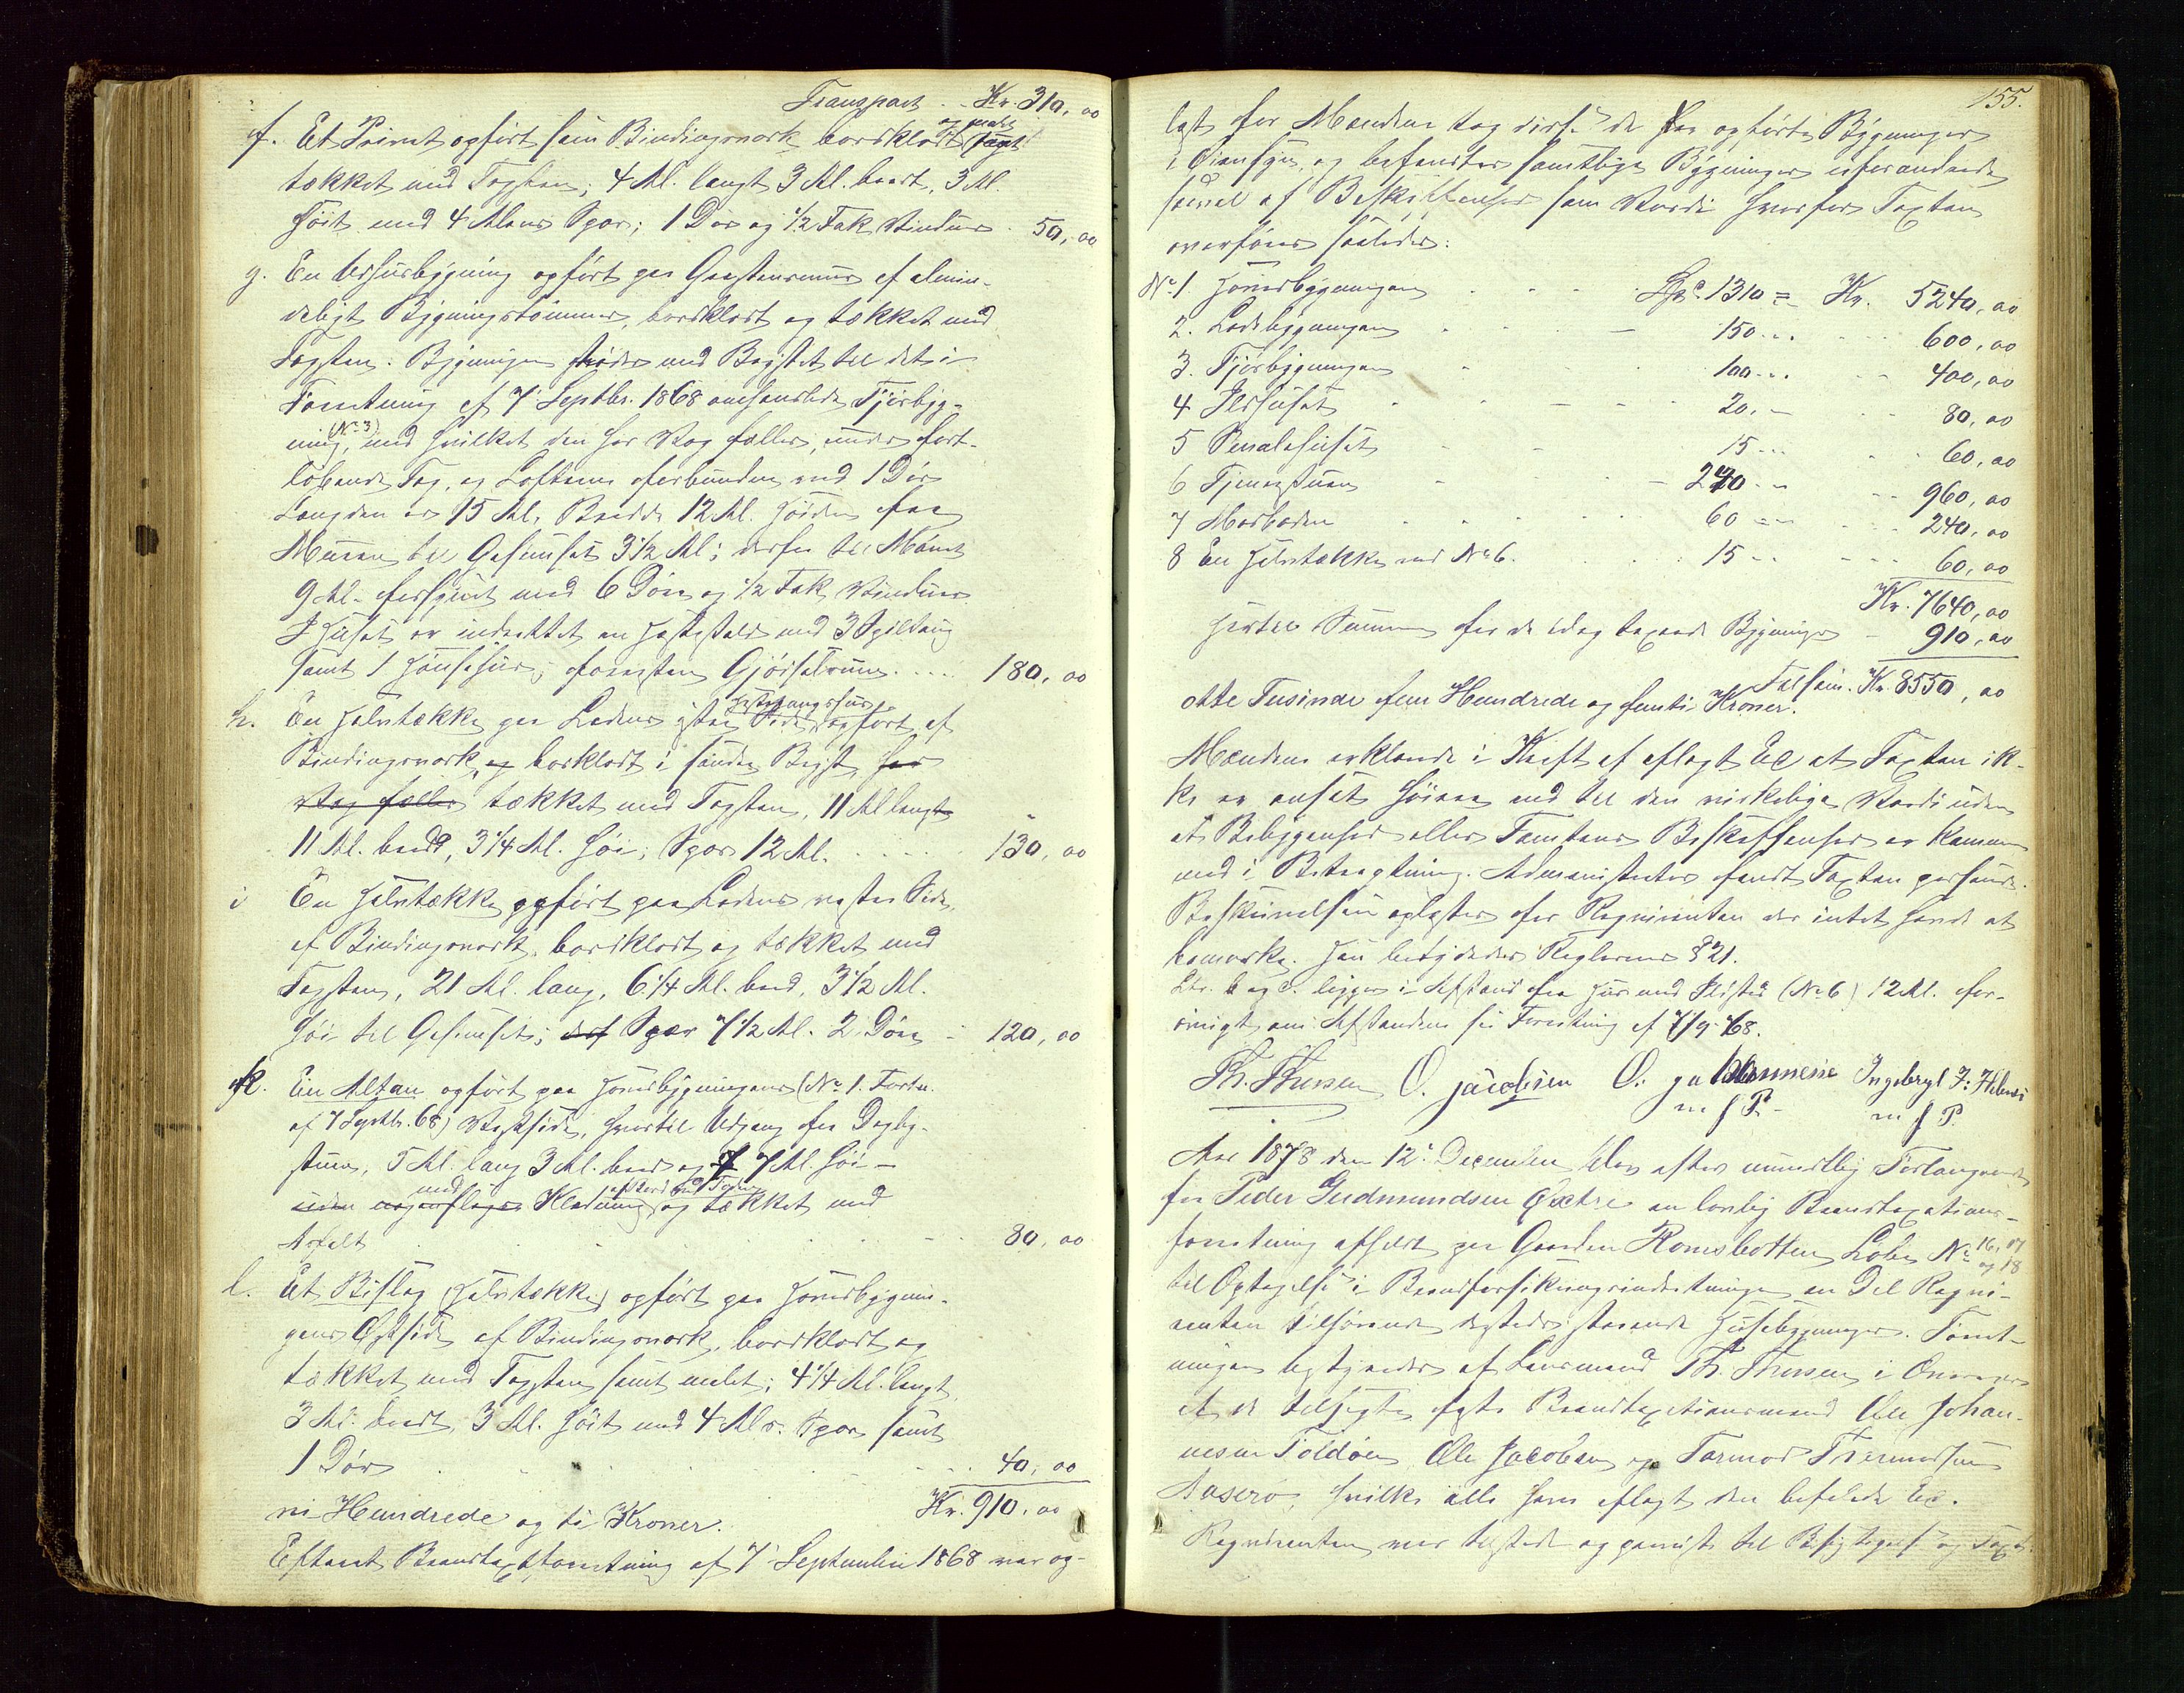 Transport . . Kr. 310, 00
f. Et Privet opført som Bindingsverk bordklædt og malet samt
tækket med Tagsten; 4 Al. langt 3 Al. bredt, 3 Al.
høit med 4 Alens Spær; 1 Dør og 1/2 Fak Vinduer . 50, 00
g. En Udhusbygning opført paa Graastensmuur af almin-
deligt Bygningstømmer, bordklædt og tækket med
Tagsten. Bygningen støder med Bagsted til det i
Forretning af 7 Septbr. 1868 omhandlede Fjøsbyg-
ning (No. 3), med hvilket den har Væg fælles, under fort-
løbende Tag, og Lofterne forbundne med 1 Dør
Længden er 15 Al., Bredde 12 Al. Høiden fra
Muren til Gesimset 3 1/2 Al; derfra til Mønet
9 Al. forsynet med 6 Døre og 1/2 Fak Vinduer
I Huset er indrettet en Hestestald med 3 Spiltaug
samt 1 Hønsehus, forresten Gjødselrum. . . . . 180, 00
h. En Halvtække paa Ladens østre Side, opført af
Bindingsverk, og bordklædt i søndre Bagst, har
Væg fælles tækket med Tagsten, 11 Al langt
11 Al. bredt, 3 1/4 Al. høi; Spær 12 Al. . . . . 130, 00
i En Halvtække opført paa Ladens vestre Side
af Bindingsverk, bordklædt og tækket med
Tagsten, 21 Al. lang, 6 1/4 Al. bred, 3 1/2 Al.
høi til Gesimset; Spær 7 1/2 Al. 2 Døre - 120, 00
k. En Altan opført paa Hovedbygningens (No. 1. Forr.
af 7 Septbr. 68) Vestside, hvortil Udgang fra Daglig-
stuen, 5 Al. lang 3 Al. bred og 7 Al. høi -
uden nogenslags med Klædning og tækket med
Asfalt . . . . . . . 80, 00
l. Et Bislag (Halvtække) opført paa Hovedbygnin-
gens Østside af Bindingsverk, bordklædt og
tækket med Tagsten samt malet; 4 1/4 Al. langt,
3 Al. bredt, 3 Al. høit med 4 Al. Spær samt
1 Dør . . . . . . 40, 00
ni Hundrede og ti Kroner. Kr. 910, 00
Efterat Brandtaxtforretning af 7 Septembr 1868 var op-
155.
læst for Mændene tog disse de før opførte Bygninger
i Øiensyn, og befandtes samtlige Bygninger uforandrede
saavel af Beskaffenhed som Værdi hvorfor Taxten
overføres saaledes:
No. 1 Hovedbygningen . . . Spd. 1310 = Kr. 5240, 00
2. Ladebygningen . . - 150 . . . . 600, 00
3. Fjøsbygningen . . . 100 . . . - 400, 00
4 Ildhuset . . - - . 20. - . . 80, 00
5 Smalehuset . - 15 . . . . . 60, 00
6 Tjenerstuen - . . - 240 . . - - 960, 00
7 Madboden . . . . . 60 = - . . . 240, 00
8 En Halvtække ved No. 6. . . . . . 15 . . - - - 60, 00
Kr. 7640, 00
Hertil Summen for de idag taxerede Bygninger - 910, 00
Talsum. Kr. 8550, 00
otte Tusinde fem Hundrede og femti Kroner.
Mændene erklærede i Kraft af aflagt Ed at Taxten ik-
ke er ansat høiere end til den virkelige Værdi uden
at Bebyggelses eller Tomtens Beskaffenhed er kommen
med i Betragtning. Administrator fandt Taxten passende.
Beskrivelsen oplæstes for Rekvirenten der intet havde at
bemærke. Han betydedes Reglernes § 21.
Ltr. b og c. ligger i Afstand fra Hus med Ildsted (No. 6) 12 Al. for-
øvrigt om Afstanden se Forretning af 7/9-68.
Th. Thuesen O. Jacobsen O. Johannesen Ingebregt
m f P. - m f P.
Aar 1878 den 12. December blev efter mundtlig Forlangende
fra Peder Gudmundsen Øxtre en lovlig Brandtaxations-
forretning afholdt paa Gaarden Romsbotten Løbe No. 16, 17 og 18
til Optagelse i Brandforsikringsindretningen en Del Rekvi-
renten tilhørende dersteds staaende Husebygninger. Forret-
ningen bestyredes af Lensmand Th. Thuesen i Overvær
af de tilsagte faste Brandtaxationsmænd Ole Johan-
nesen Toldøen, Ole Jacobsen og Tormod Thormodsen
Aaserø, hvilke alle have aflagt den befalede Ed.
Rekvirenten var tilstede og paaviste til Besigtigelse og Taxt